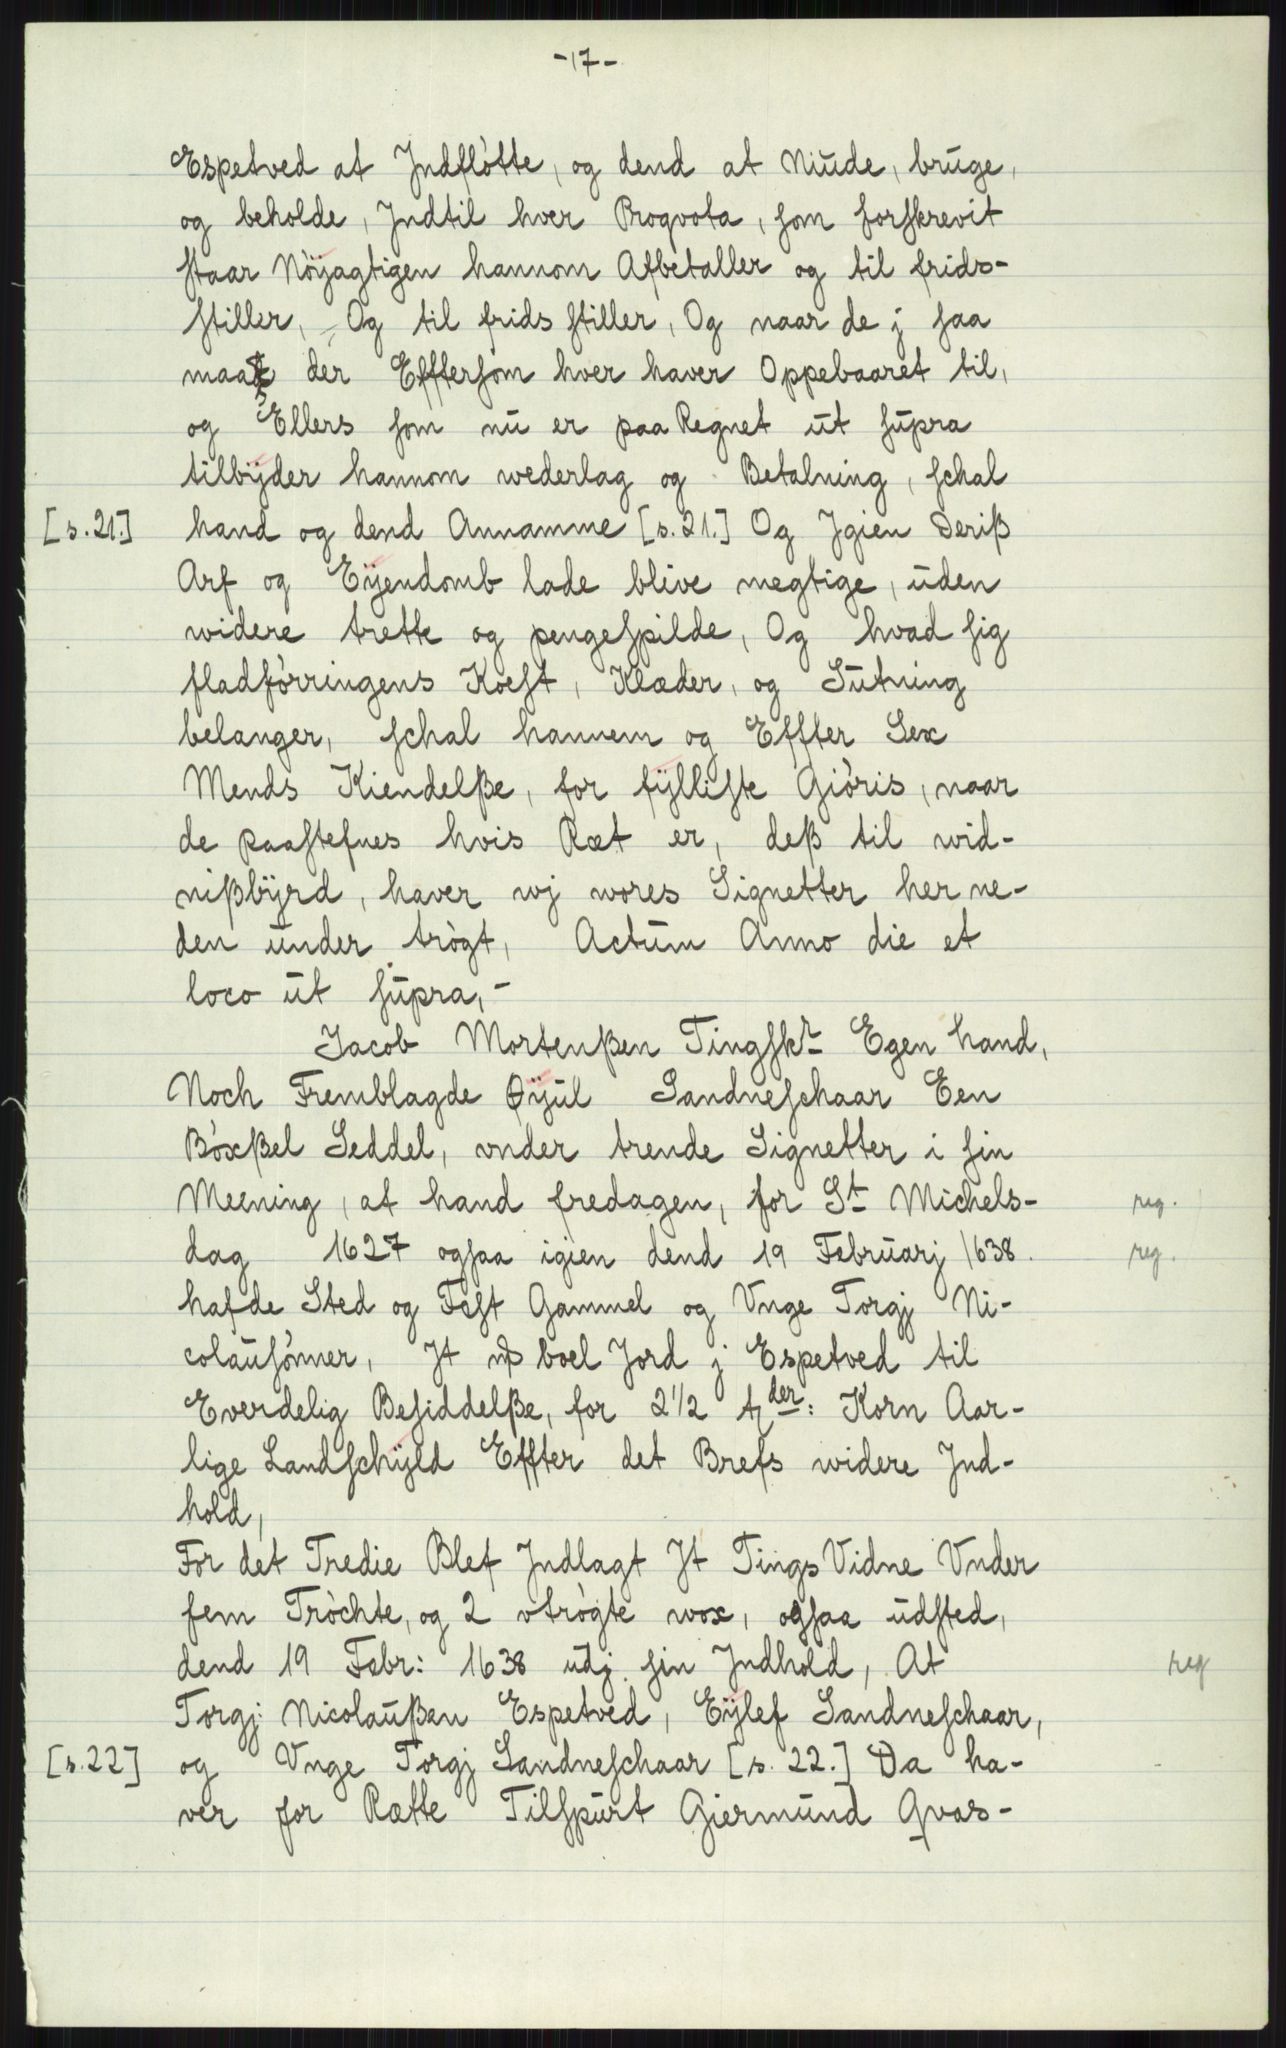 -17-
Espetved at Jndfløtte, og dend at Niude, bruge,
og beholde, Jndtil hver Proqvota, som forskrevit
staar Nöÿagtigen hannom Afbetaller og til frids-
stiller, Og til frids stiller, Og naar de j saa
maade der Efftersom hver haver Oppebaaret til,
og Ellers som nu er paa Regnet ut supra
tilbÿder hannom wederlag og Betalning, schal
[s.21.] hand og dend Annamme [s.21.] Og Jgien Deriß
Arf og Eÿendomb lade blive megtige, uden
widere trette og pengespilde, Og hvad sig
fladförringens Koest, Klæder, og Sutning
belanger, schal hannem og Effter Sex
Mends Kiendelße, for fÿlliste Giöris, naar
de paastefnes hvis Ræt er, deß til wid-
nißbÿrd, haver wj wores Signetter her ne-
den under trögt, Actum Anno die et
loco ut supra,-
Jacob Mortenßen Tingskr Egen hand,
Noch Fremblagde Øÿul Sandneschaar Een
Böxßel Seddel, vnder trende Signetter i sin
Meening, at hand fredagen, for St Michels- reg.
dag 1627 ogsaa igien dend 19 Februarj 1638. reg.
hafde Sted og Fest Gammel og Vnge Torgj Ni-
colausönner, Jt boel Jord j Espetved til
Everdelig Besiddelße, for 2 1/2 tder: Korn Aar-
lige Landschÿld Effter det Brefs widere Jnd-
hold,
For det Tredie Blef Jndlagt Jt Tings Vidne Vnder
fem Tröchte, og 2 vtrögte wox, ogsaa udsted,
dend 19 Febr: 1638 udj sin Jndhold, At reg
Torgj: Nicolaußen Espetved, Eÿlef Sandneschaar,
[s.22] og Vnge Torgj Sandneschaar [s. 22.] Da ha-
ver for Rætte Tilspurt Giermund Qvas-